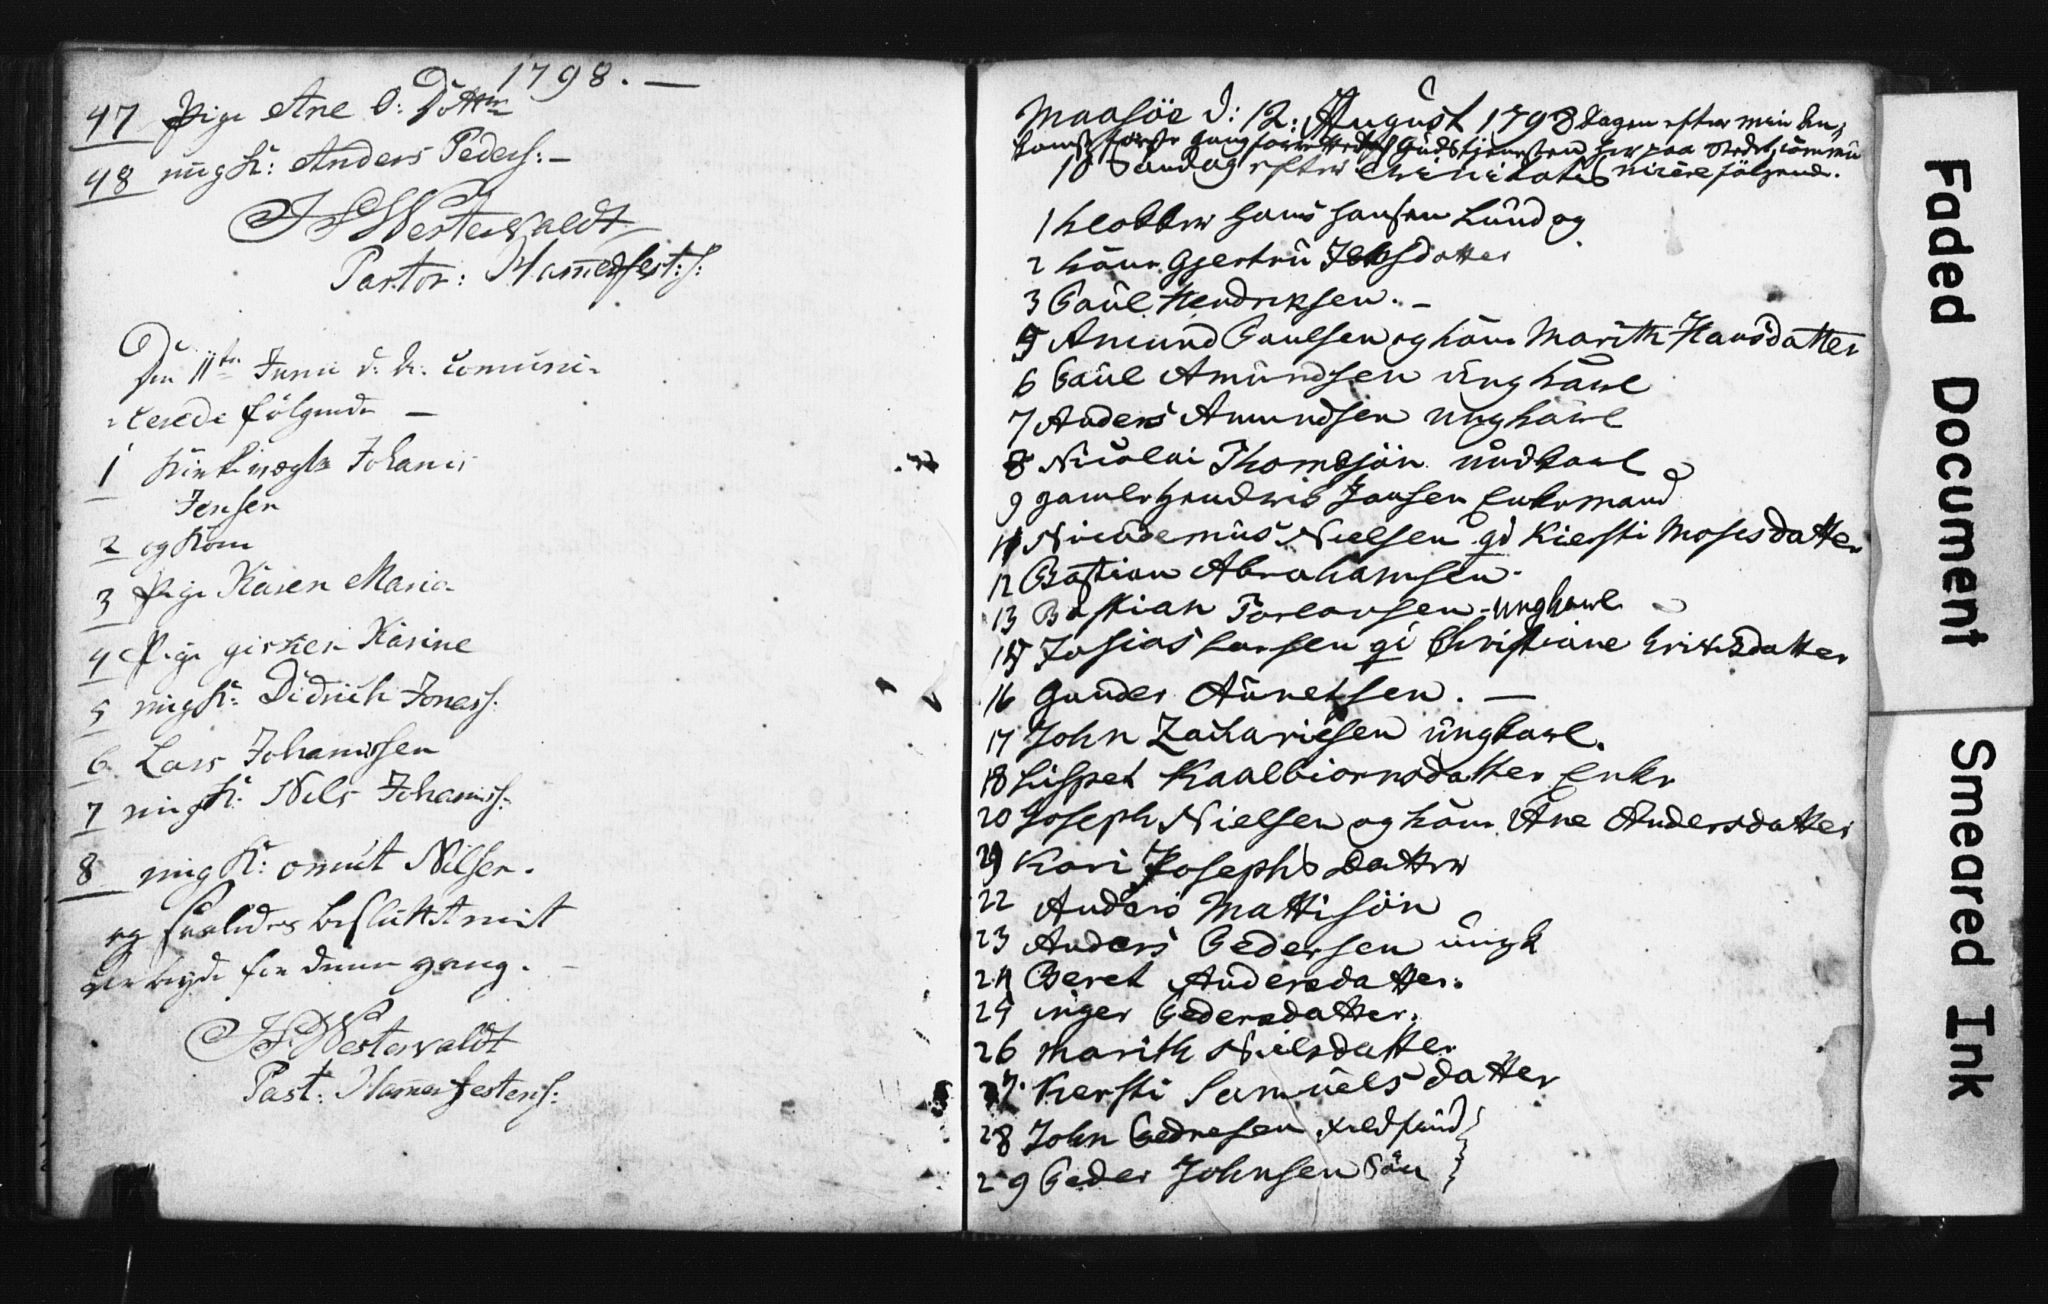 1798. —
47 Pige Ane O: Dottr
48 ungk: Anders Peders: —
JF Westerwaldt
Pastor: Hamerfest:s:
Den 11te Junii d. A. Comuni-
cerede følgende —
1 Johanis
Jensen
2 og Kone
3 Pige Karen Maria
4 Pige Karine
5 ungk: Didrich Jonas:
6. Lars Johanissen
7 ungk: Nils Johanis:
8 ungk: omut Nilsen.
og besluttet mit
for denne gang. —
JF Westerwaldt
Past: Hamerfestens:
Maasöe d: 12: August 1798 dagen efter min An-
komst første gang Gudstjenesten her paa Stedet
10 Søndag efter Trinitatis følgende.
1 Klokker Hans Hansen Lund og
2 kone Gjertru Jensdatter
3 Paul Hendriksen. —
5 Amund Paulsen og kone Marith Hansdatter
6 Paul Amundsen ungkarl
7 Anders Amundsen ungkarl
8 Nicolai Thomesön ungkarl
9 gamle Hendrik Jansen Enkemand
11 Nicodemus Nielsen gi Kiersti Mosesdatter
12 Bastian Abrahamsen.
13 Bastian Torlarsen - ungkarl
15 Josias Larsen gi Christiane Erichsdatter
16 Gunder . —
17 John Zachariesen ungkarl.
18 Lispet Kaalbiornsdatter Enke
20 Joseph Nielsen og kone Ane Andersdatter
21 Kari Josephs datter
22 Anders Mattisön
23 Anders Pedersen ungk
24 Beret Andersdatter.
25 inger Pedersdatter.
26 Marith Nielsdatter
27. Kersti Samuels datter
28 John Pedersen
29 Peder Johnsen Sön
Faded Document
Smeared Ink